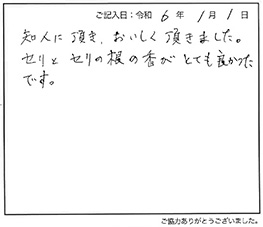 ご記入日：令和 6 年 1 月 1 日
知人に頂き、おいしく頂きました。
セリとセリの根の香がとても良かった
です。
ご協力ありがとうございました。